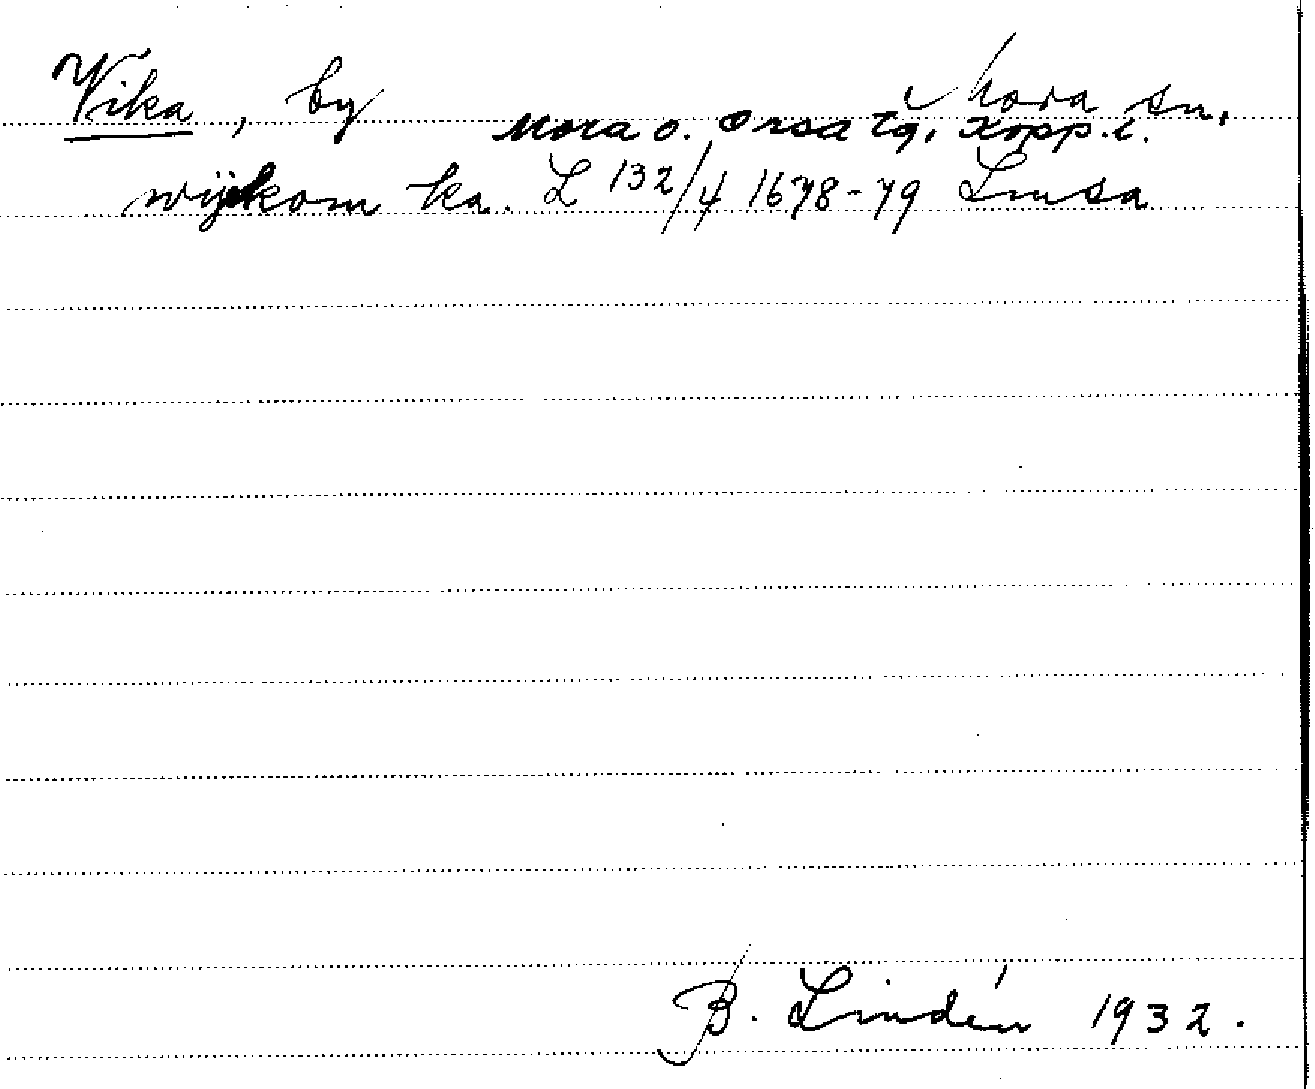 Vika, by i Mora sn,
Mora o. Orsa tg, Kopp. l.
wijkom ka. L 132/4 1678-79 Lmsa
B. Lindén 1932.